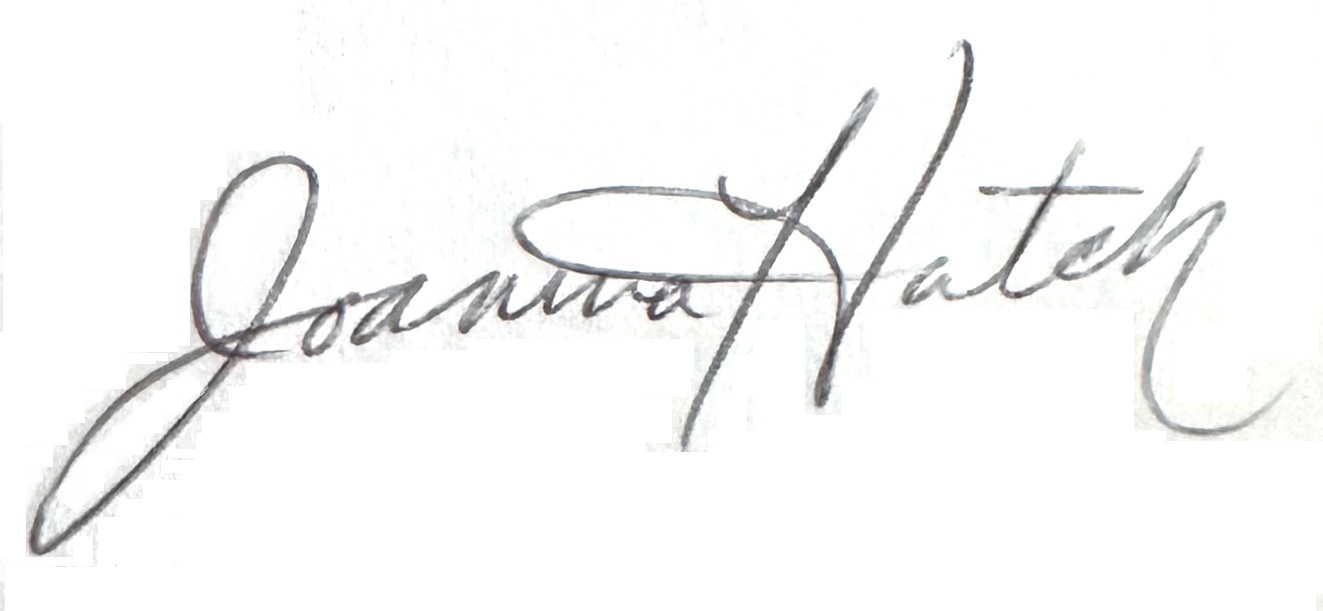 Joanna Hatch